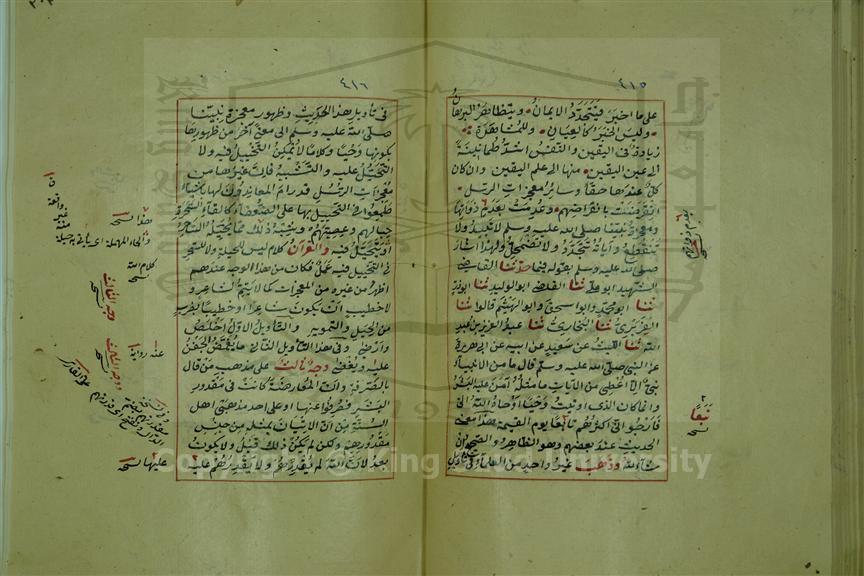 ٤١٥
على ما اخبر فيتجدد الايمان ويتظاهر البرهان
وليس الخبر كالعيان وللمشاهدة
زيادة في اليقين والنفس اشد طمانينة
الى عين اليقين منها الى علم اليقين وان كان
كل عندها حقا وسائر معجزات الرسل
انقرضت بانقراضهم وعدمت بعدم ذواتها
ومعجزة نبينا صلى الله عليه وسلم لا تبيد ولا
تنقطع واياته تتجدد ولا تضمحل ولهذا اشار
صلى الله عليه وسلم بقوله فيما حدثنا القاضي
الشهيد ابو علي ثنا القاضي ابو الوليد ثنا ابو ذر
ثنا ابو محمد وابو اسحق وابو الهيثم قالوا ثنا
الفربري ثنا البخاري ثنا عبد العزيز بن عبد
الله ثنا الليث عن سعيد عن ابيه عن ابي هريرة
عن النبي صلى الله عليه وسلم قال ما من الانبياء
نبي الا اعطي من الآيات ما مثله آمن عليه البشر
وانما كان الذي اوتيت وحيا اوحاه الله الي
فارجو اني اكثرهم تابعا يوم القيمة هذا معنى
الحديث عند بعضهم وهو الظاهر والصحيح ان
شاء الله وذهب غير واحد من العلماء في تاويل
تبعا
نسخه
٤١٦
في تأويل هذا الحديث وظهور معجزة نبينا
صلى الله عليه وسلم الى معنى آخر من ظهورها
بكونها وحيا وكلاما لا يمكن التخييل فيه ولا
التحيل عليه ولا التشبيه فان غيرها من
معجزات الرسل قد رام المعاندون لها باشياء
طمعوا في التخييل بها على الضعفاء كالقاء السحرة
حبالهم وعصيهم وشبه ذلك مما يخيله الساحر
او يتحيل فيه والقرآن كلام ليس للحيلة ولا للسحر
في التخييل فيه عمل فكان من هذا الوجه عندهم
اظهر من غيره من المعجزات كما لا يتم لشاعر و
لا خطيب ان يكون شاعرا او خطيبا بضرب
من الحيل والتمويه والتأويل الاول اخلص
وارضى وفي هذا التأويل الثاني ما يغمض الجفن
عليه ويغضى وجه ثالث على مذهب من قال
بالصرفة وان المعارضة كانت في مقدور
البشر فصرفوا عنها او على احد مذهبي اهل
السنة من ان الاتيان بمثله من جنس
مقدورهم ولكن لم يكن ذلك قبل ولا يكون
بعد لان الله لم يقدرهم ولا يقدرهم عليه
كلام الله
نسخه
وجه الثالث
نسخه
عليها نسخه
Copyright © King Saud University